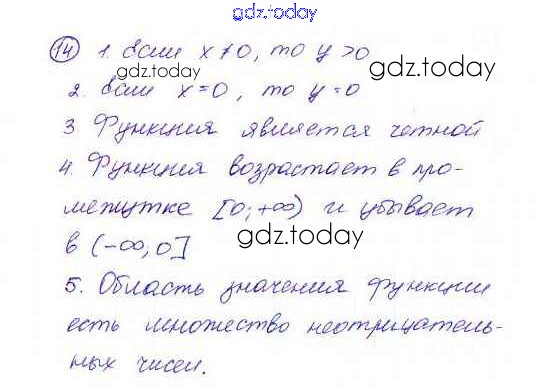 gdz.today
14 1. Если x ≠ 0, то y > 0
gdz.today
gdz.today
2. Если x = 0, то y = 0
3 Функция является четной
4. Функция возрастает в про-
gdz.today
межутке [0; +∞) и убывает
gdz.today
в (-∞; 0]
5. Область значения функции
есть множество неотрицатель-
ных чисел.
gdz.today